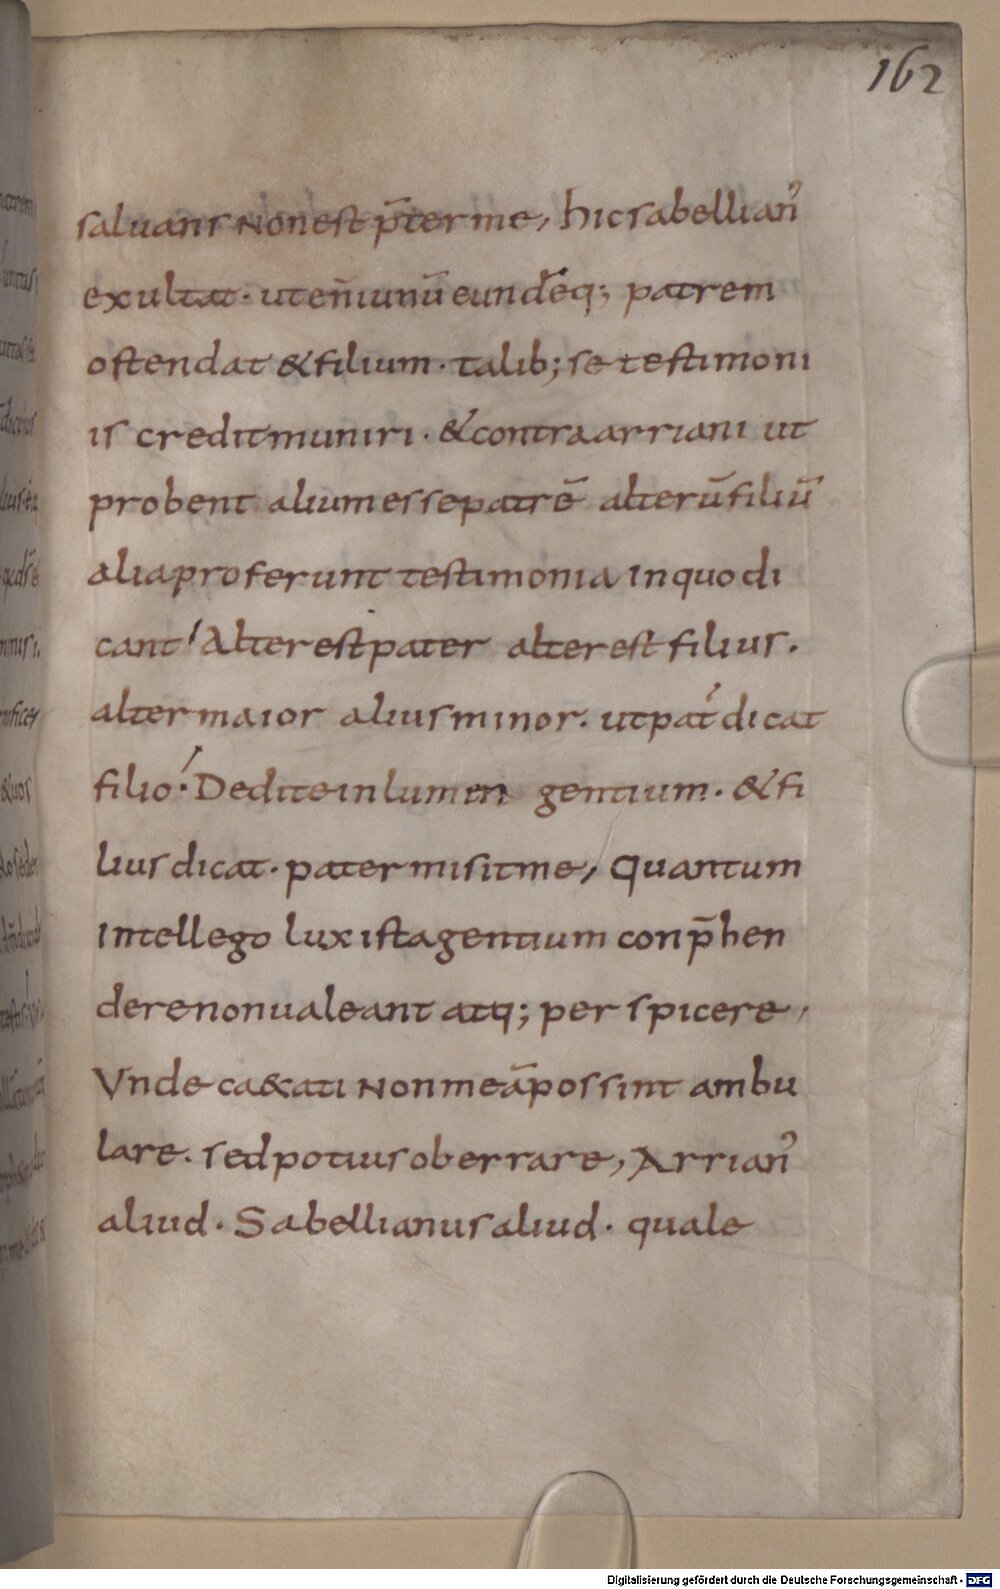 162
saluans Non est p̄ter me, hic sabellian᾽
exultat · ut en̄iun ū eund̄eq; patrem
ostendat & filium · talib; se testimoni
is credit muniri · & contra arriani ut
probent alium esse patrē alterū filiū
alia proferunt testimonia in quo di
cant᾽ Alter est pater alter est filius.
alter maior alius minor. ut pat᾽ dicat
filio: Dedi te in lumen gentium. & fi
lius dicat · pater misit me, Quantum
intellego lux ista gentium conp̄hen
dere non ualeant atq; perspicere,
Vnde ca&ati Non mea p̄ possint ambu
lare. sed potius oberrare, Arrian᾽
aliud. Sabellianus aliud. quale
Digitalisierung gefördert durch die Deutsche Forschungsgemeinschaft - DFG